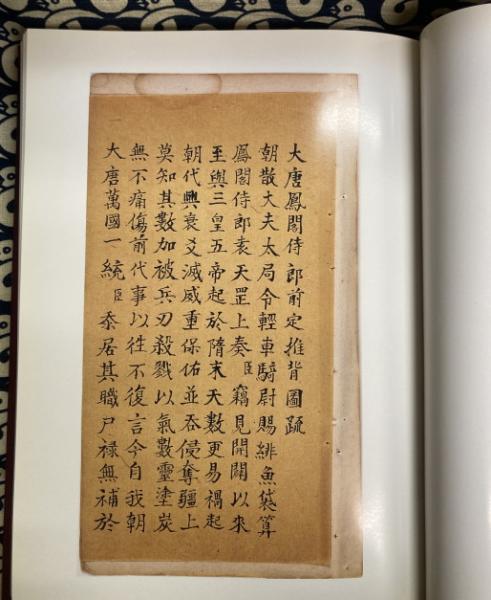 大唐鳳閣侍郎前定推背圖疏
朝散大夫太局令輕車騎尉賜緋魚袋算
鳳閣侍郎袁天罡上奏臣竊見開闢以來
至與三皇五帝起於隋末天數更易禍起
朝代興衰爻滅威重保佑並吞侵奪疆上
莫知其數加被兵刃殺戮以氣數靈塗炭
無不痛傷前代事以往不復言今自我朝
大唐萬國一統臣忝居其職尸祿無補於